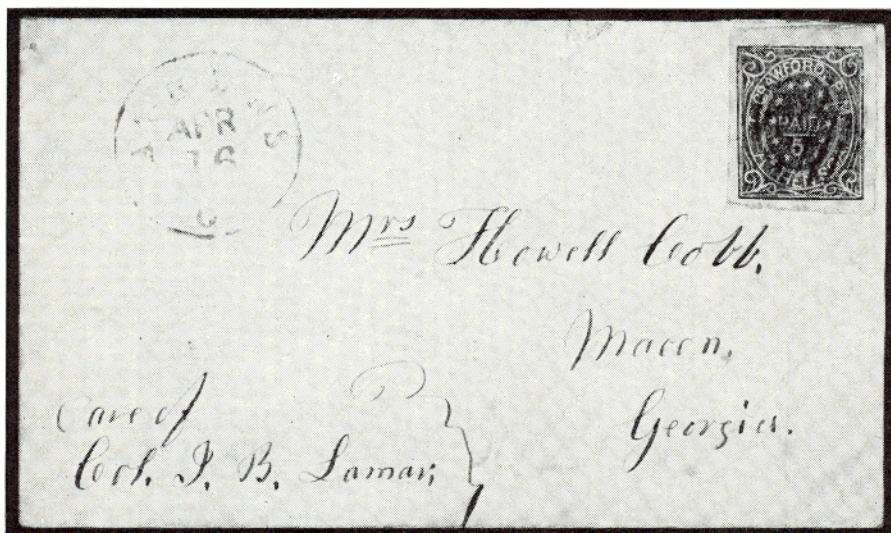 ATHENS
APR
16
CRAWFORD, P.M.
PAID
5
ATHENS
Mrs Howell Cobb.
Macon,
Georgia.
Care of
Col. J. B. Lamar,